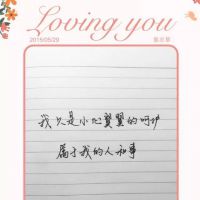 Loving you
2015/05/29
我只是小心翼翼的呵护
属于我的人和事